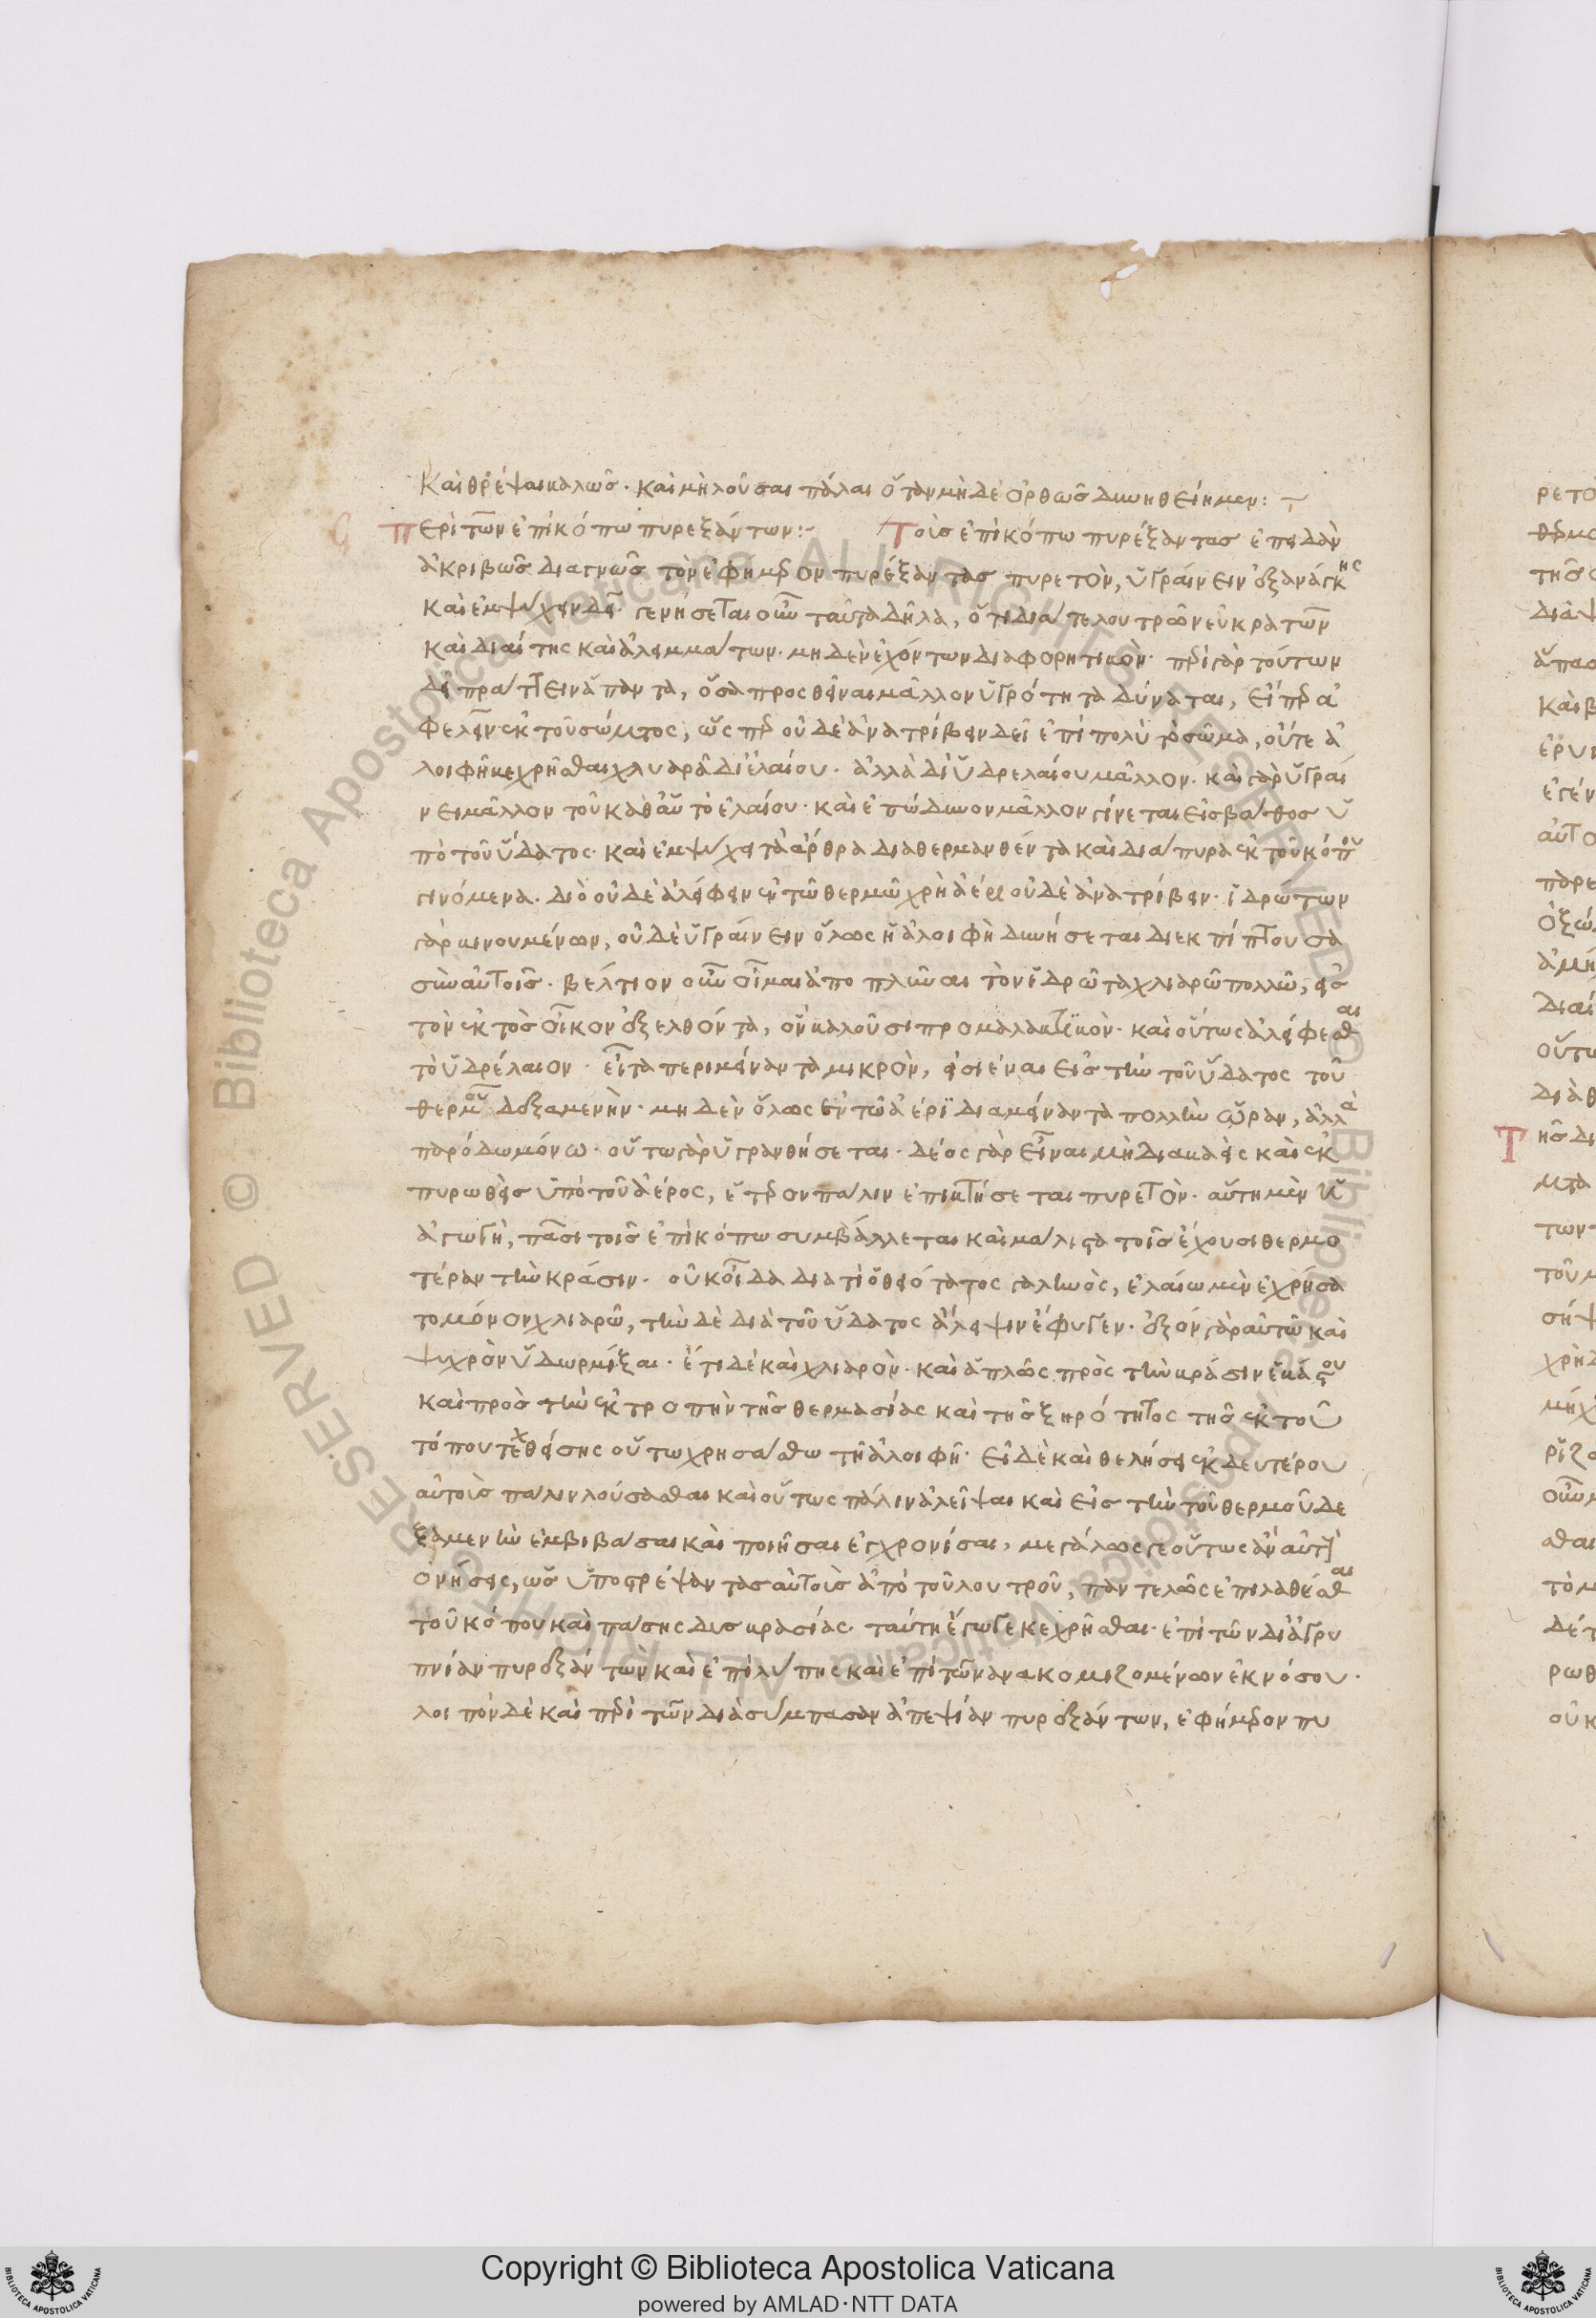 Καὶ θρέψαι καλῶς· καὶ μὴ λοῦσαι πάλαι ὅταν μὴ δὲ ὀρθῶς δυνηθείημεν:
ϛ Περὶ τῶν ἐπὶ κόπω πυρεξάντων:- Τοῖς ἐπὶ κόπω πυρέξαντας ἐπειδὰν
ἀκριβῶς διαγνῶς τὸν ἐφήμερον πυρέξαντας πυρετὸν, ὑγραίνειν ἐξανάγκης
καὶ ἐμψύχειν δεῖ· γενήσεται οὖν ταῦτα δῆλα, ὅτι δια τε λουτρῶν εὐκράτων
καὶ διαίτης καὶ ἀλειμμάτων· μηδὲν ἐχόντων διαφορητικὸν· περὶ γὰρ τούτων
δεῖ πράττειν ἅπαντα, ὅσα προσθεῖναι μᾶλλον ὑγρότητα δύναται, εἴπερ ἀ
φελεῖν ἐκ τοῦ σώματος, ὥσπερ οὐδὲ ἀνατρίβειν δεῖ ἐπὶ πολὺ τὸ σῶμα, οὔτε ἀ
λοιφῆ κεχρῆσθαι χλιαρᾶ δι' ἐλαίου· ἀλλὰ δι' ὑδρελαίου μᾶλλον· καὶ γὰρ ὑγραί
νει μᾶλλον τοῦ καθ' αὑτὸ ἐλαίου· καὶ ἐπώδυνον μᾶλλον γίνεται εἰς βάθος ὑ
πὸ τοῦ ὕδατος· καὶ ἐμψύχει τὰ ἄρθρα διαθερμανθέντα καὶ διάπυρα ἐκ τοῦ κόπου
γινόμενα· διὸ οὐδὲ ἀλείφειν ἐν τῶ θερμῶ χρὴ ἀέρι οὐδὲ ἀνατρίβειν· ἱδρώτων
γὰρ κινουμένων, οὐδὲ ὑγραίνειν ὅλως ἡ ἀλοιφὴ δυνήσεται διεκπίπτουσα
σὺν αὐτοῖς· βέλτιον οὖν οἶμαι ἀποπλῦναι τὸν ἱδρῶτα χλιαρῶ πολλῶ, εἰς
τὸν ἐκτὸς οἶκον ἐξελθόντα, ὃν καλοῦσι προμαλακτικὸν· καὶ οὕτως ἀλείφεσθαι
τὸ ὑδρέλαιον· εἶτα περιμείναντα μικρὸν, εἰσιέναι εἰς τὴν τοῦ ὕδατος τοῦ
θερμοῦ δεξαμενὴν· μηδὲν ὅλως ἐν τῶ ἀέρι διαμείναντα πολλὴν ὥραν, ἀλλὰ
παρόδω μόνω· οὕτω γὰρ ὑγρανθήσεται· δέος γὰρ εἶναι μὴ διακαεὶς καὶ ἐκ
πυρωθεὶς ὑπὸ τοῦ ἀέρος, ἕτερον πάλιν ἐπικτήσεται πυρετὸν· αὕτη μὲν ἡ
ἀγωγὴ, πᾶσι τοῖς ἐπὶ κόπω συμβάλλεται καὶ μάλιστα τοῖς ἔχουσι θερμο
τέραν τὴν κρᾶσιν· οὐκ οἶδα διατί ὁ θειότατος γαληνὸς, ἐλαίω μὲν ἐχρήσα
το μόνον χλιαρῶ, τὴν δὲ διὰ τοῦ ὕδατος ἄλειψιν ἔφυγεν· ἐξὸν γὰρ αὐτῶ καὶ
ψυχρὸν ὕδωρ μίξαι· ἔτι δὲ καὶ χλιαρὸν· καὶ ἁπλῶς πρὸς τὴν κράσιν ἑκάστου
καὶ πρὸς τὴν ἐκτροπὴν τῆς θερμασίας καὶ τῆς ξηρότητος τῆς ἐκ τοῦ
τόπου τεχθείσης οὕτω χρησάσθω τῆ ἀλοιφῆ· εἰ δὲ καὶ θελήσει ἐκ δευτέρου
αὐτοὺς πάλιν λούσασθαι καὶ οὕτως πάλιν ἀλεῖψαι καὶ εἰς τὴν τοῦ θερμοῦ δε
ξαμενὴν ἐμβιβάσαι καὶ ποιῆσαι ἐγχρονίσαι, μεγάλως γε οὕτως ἂν αὐτοὺς
ὀνήσεις, ὡς ὑποστρέψαντας αὐτοὺς ἀπὸ τοῦ λουτροῦ, παντελῶς ἐπιλαθέσθαι
τοῦ κόπου καὶ πάσης δυσκρασίας· ταύτη ἔγωγε κεχρῆσθαι· ἐπὶ τῶν δι' ἀγρυ
πνίαν πυρεξάντων καὶ ἐπὶ λύπης καὶ ἐπὶ τῶν ἀνακομιζομένων ἐκ νόσου·
λοιπὸν δὲ καὶ περὶ τῶν διὰ σύμπασαν ἀπεψίαν πυρεξάντων, ἐφήμερον πυ
Copyright © Biblioteca Apostolica Vaticana
powered by AMLAD·NTT DATA